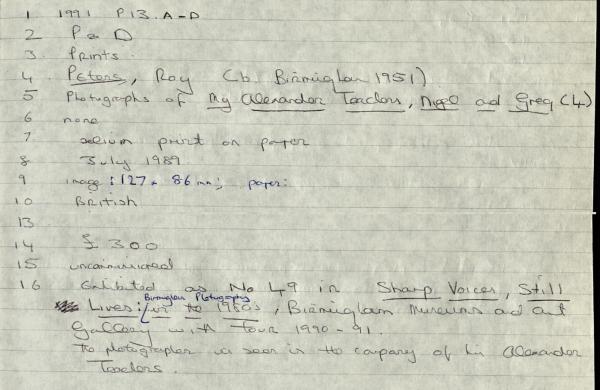 1 1991 P13. A-D
2 P & D
3. Prints.
4. Peters, Roy (b. Birmingham 1951)
5 Photographs of My Alexander Teachers, Nigel and Greg (4)
6 none
7 selium print on paper
8 July 1989
9 image: 127 x 86 mm; paper:
10 British
13
14 £300
15 uncommissioned
16 Exhibited as No 49 in Sharp Voices, Still
Lives: Birmingham Photography in to 1980s, Birmingham Museums and Art
Gallery with Tour 1990-91.
The photographer is seen in the company of his Alexander
Teachers.